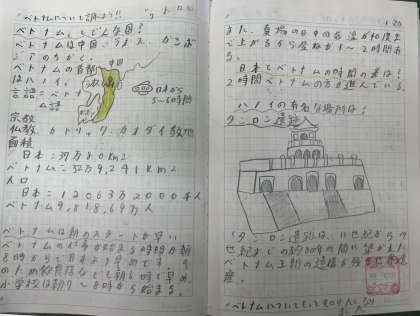 ベトナムについて調べよう!!
ベトナムってどんな国?
ベトナムは中国、ラオス、カンボ
ジアのちかく。
ベトナムの首都
はハノイ。
言語=ベトナ
ム語
中国
日本から
5〜6時間
宗教
仏教、カトリック、カオダイ教他
面積
日本:37万800km2
ベトナム=32万9,241km2
人口
日本=12063万2000千人
ベトナム9,818.69万人
ベトナムは朝のスタートが早い
ベトナムの仕事が始まる時間が朝
8時からで日本より早めです。そ
のため飲食店なども朝6時で早め、
小学校は朝7〜8時から始まる。
また、夏場の日中の気温が40度ま
で上がるから昼休みが1〜2時間あ
る。
日本とベトナムの時間の差は?
2時間ベトナムの方が遅れている。
ハノイの有名な場所は?
タンロン遺跡
タンロン遺跡は、11世紀からの
世紀までの約800年の間に築かれた
ベトナム王朝の遺構が残る
産。
ベトナムについて